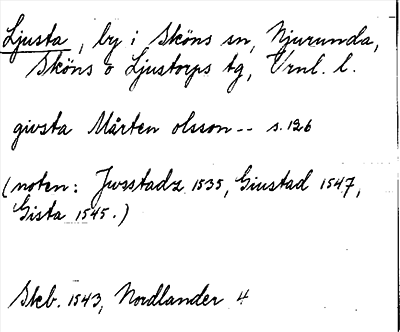 Ljusta, by i Sköns sn, Njurunda,
Sköns o Ljustorps tg, Vrnl. l.
givsta Mårten olsson -- s. 126
(noten: Jwsstadz 1535, Giustad 1547,
Gista 1545.)
Skb. 1543, Nordlander 4